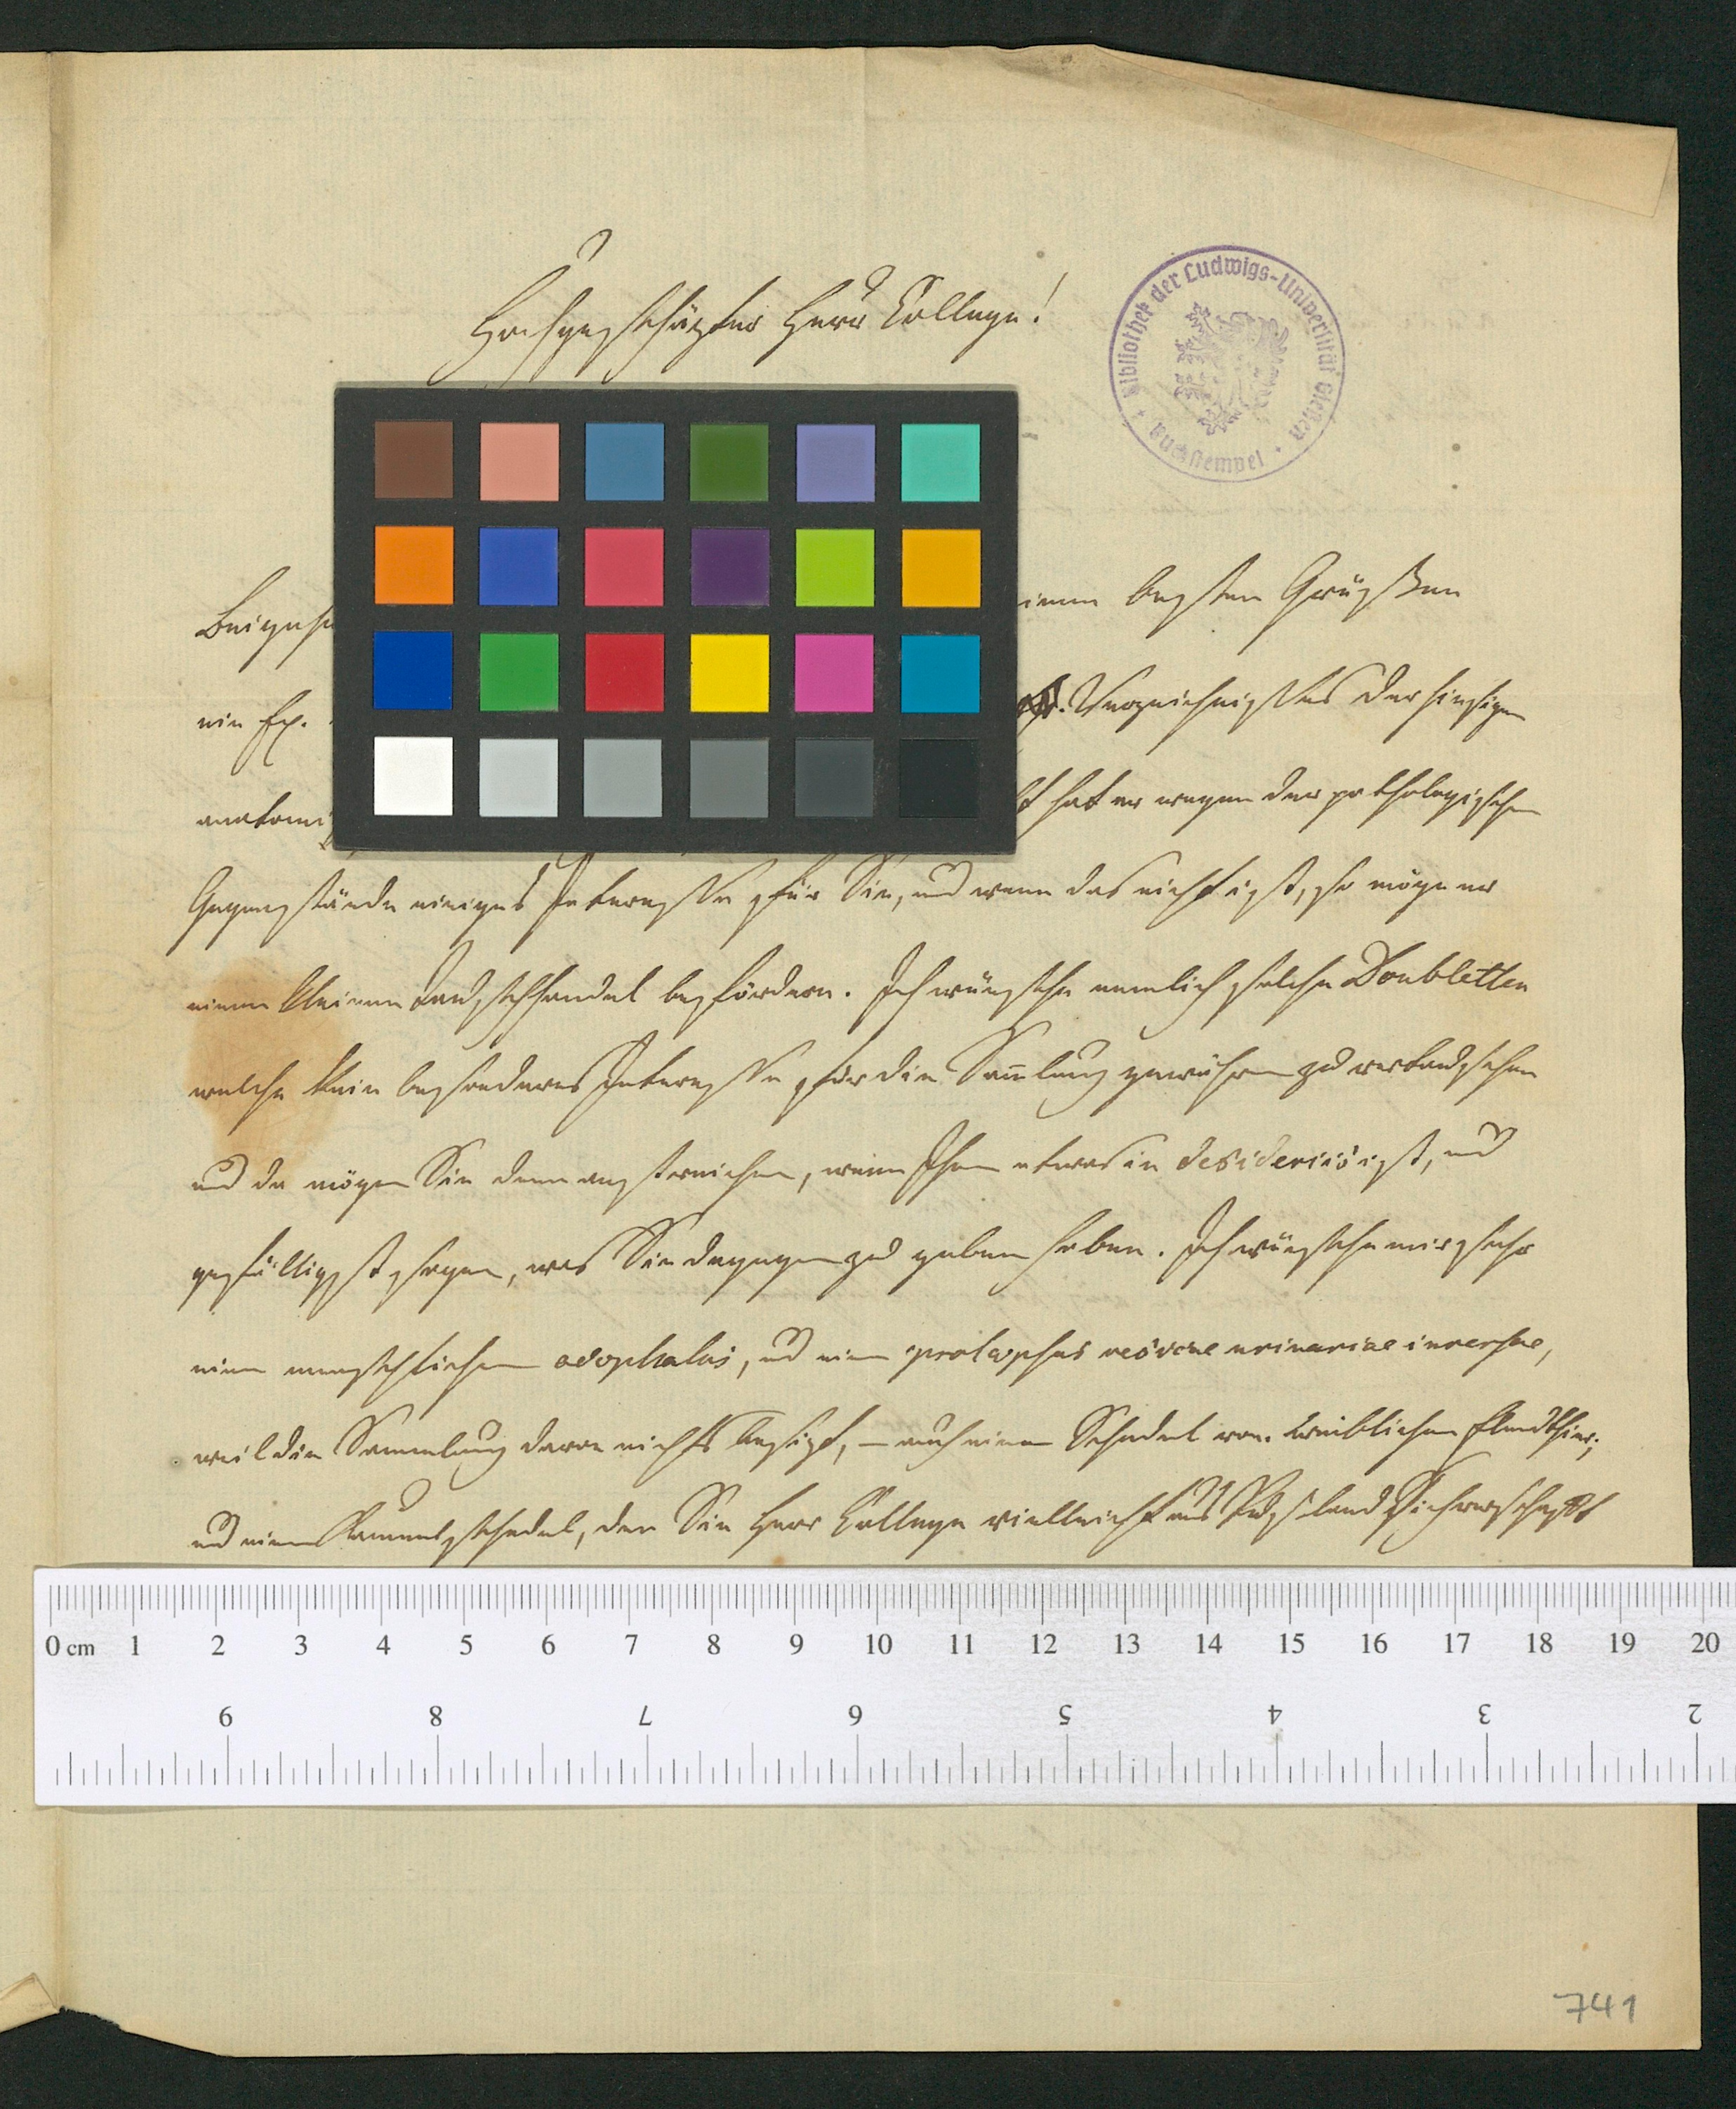 Hochgeschäzter Herr College!
Bibliothek der Ludwigs-Universität Gießen
Buchstempel
besten Grüßen
ein Ex. Verzeichnisses der hiesigen
hat er wegen der pathologischen
Gegenstände einiges Interesse für Sie, und wenn das nicht ist, so möge er
einen kleinen Tauschhandel befördern. Ich wünsche nemlich solche Doubletten
welche kein besonderes Interesse für die Sam̄lung gewähren zu vertauschen
und da mögen Sie denn anstreichen, wenn Ihnen etwas in desideriis ist, und
gefälligst sagen, was Sie dagegen zu geben haben. Ich wünsche mir sehr
einen menschlichen, und einen prolapsus vesicae urinariae inversae,
weil die Sammlung davon nichts besizt, – auch einen Schedel von weiblichen Elendthier;
und einen Kameelschedel, den Sie Herr College vielleicht aus Rußland
0 cm 1 2 3 4 5 6 7 8 9 10 11 12 13 14 15 16 17 18 19 20
9 8 7 6 5 4 3 2
741